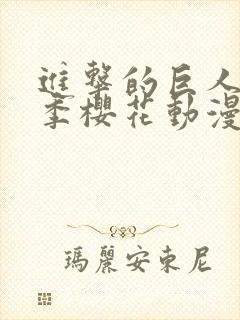 進擊的巨人
季櫻花動漫
瑪麗安東尼